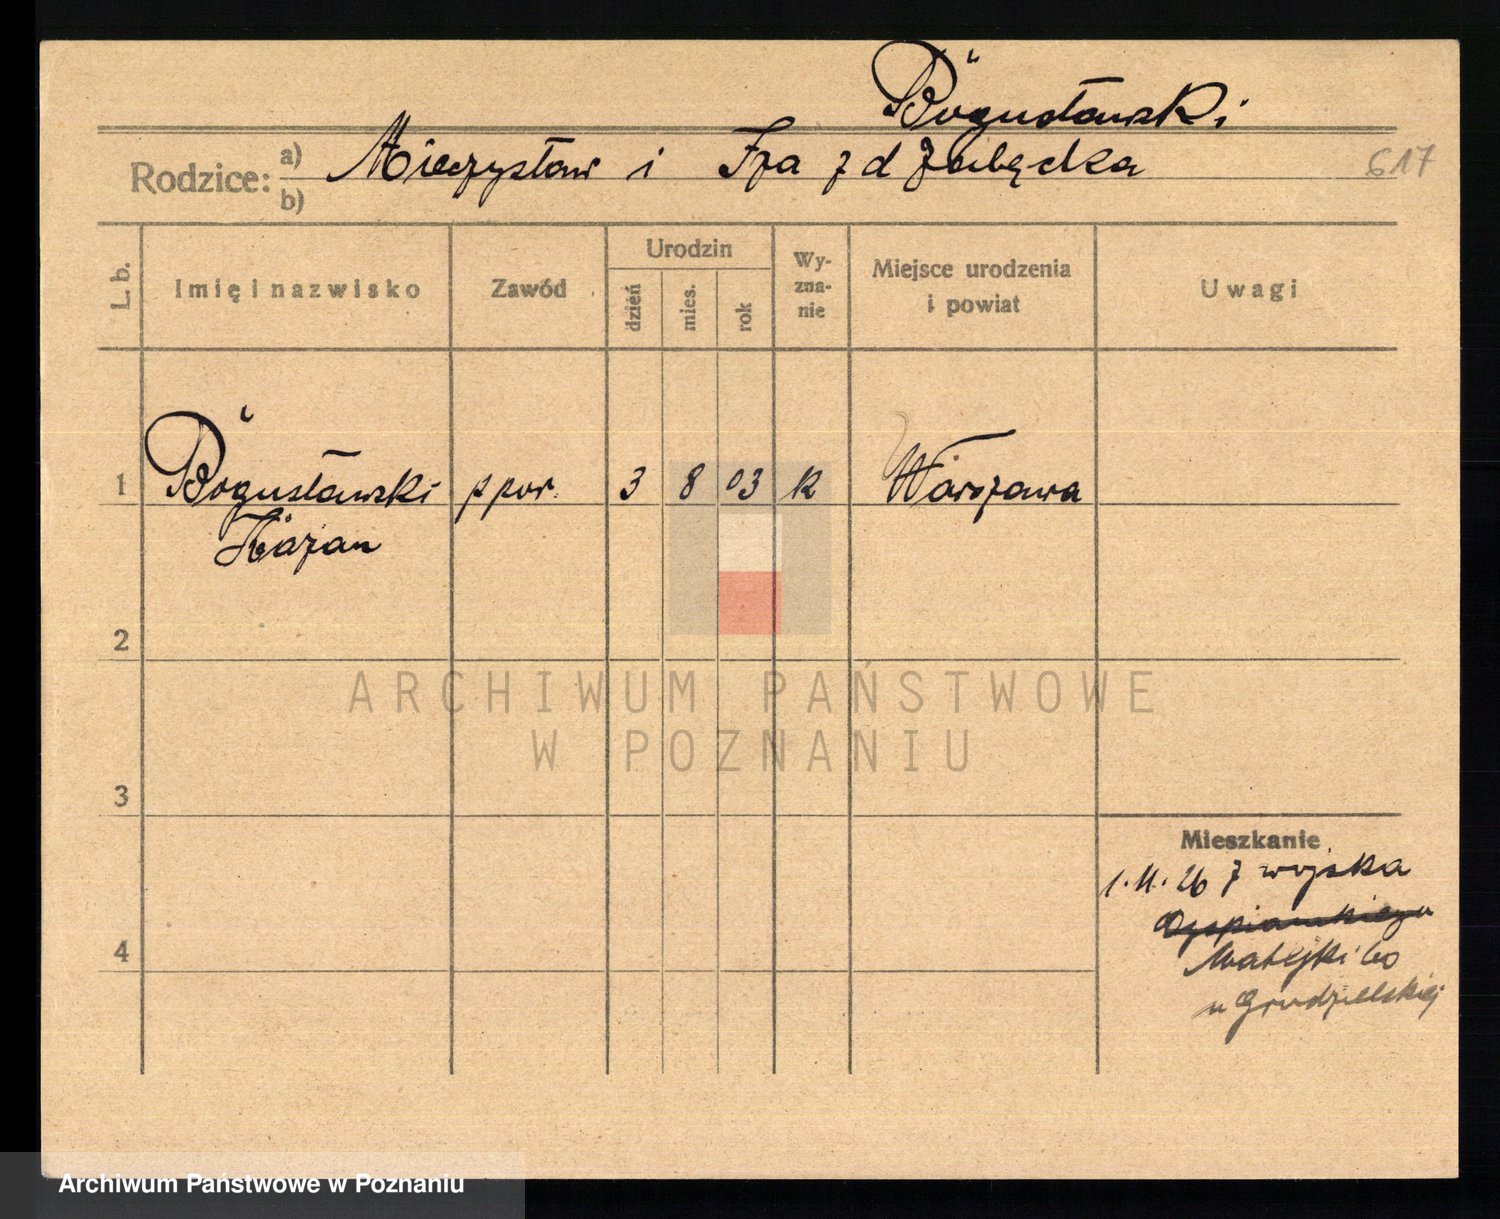 Bogusławski
Rodzice: a) b) Mieczysław i Iza z d Zubędka
617
L. b.
Imię i nazwisko
Zawód
Urodzin
dzień
mies.
rok
Wy-
zna-
nie
Miejsce urodzenia
i powiat
Uwagi
1 Bogusławski ppor. 3 8 03 R Warszawa
2
3
4
Mieszkanie
1.11.26 z wojska
Matejki 60
u Grudzielskiej
ARCHIWUM PAŃSTWOWE
W POZNANIU
Archiwum Państwowe w Poznaniu